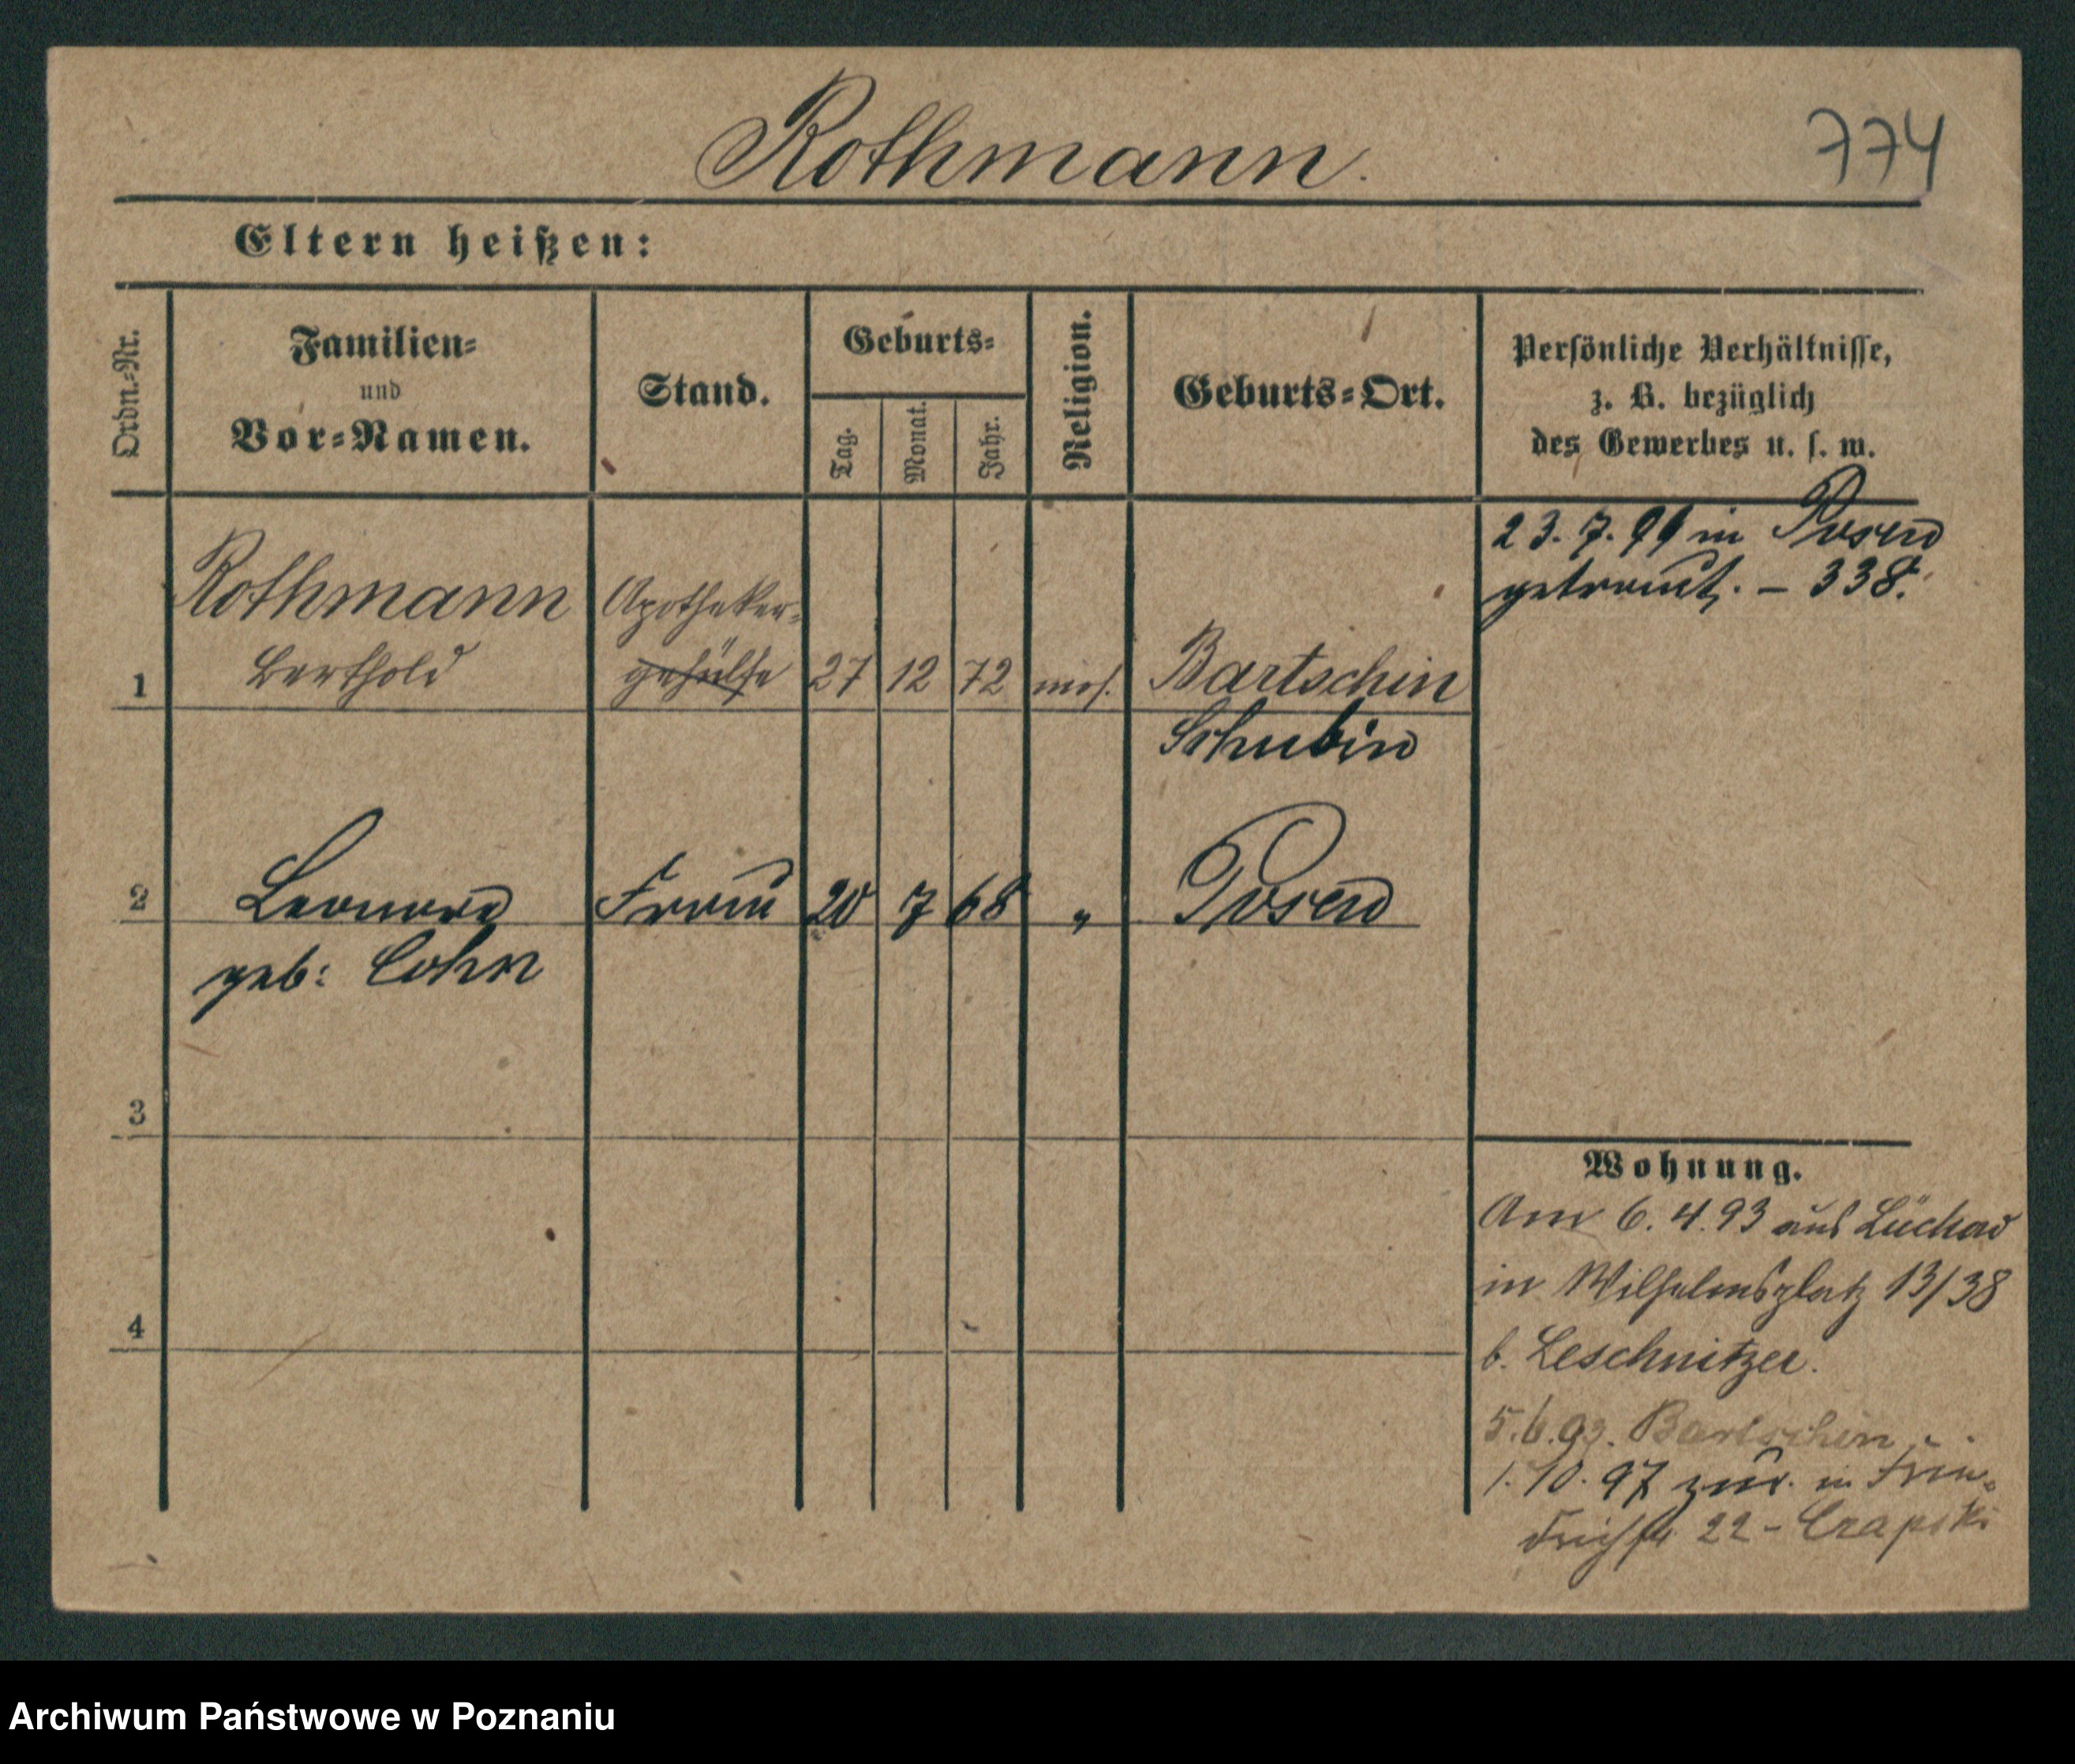 Rothmann.
774
Eltern heißen:
Ordn.-Nr.
Familien-
und
Vor-Namen.
Stand.
Geburts-
Tag.
Monat.
Jahr.
Religion.
Geburts-Ort.
Persönliche Verhältnisse,
z. B. bezüglich
des Gewerbes u. s. w.
23. 7. 99 in Posen
getraut. – 338.
1 Rothmann Berthold Apotheker- gehülfe 27 12 72 mos. Bartschin
Schubin
2 Leonore Frau 20 7 68 " Posen
geb: Cohn
3
4
Wohnung.
Am 6. 4. 93 aus Lüchow
in Wilhelmsplatz 13/38
b. Leschnitzer.
5. 6. 93. Bartschin
1. 10. 97 zur. in Frie-
drichstr 22 - Czapski
Archiwum Państwowe w Poznaniu